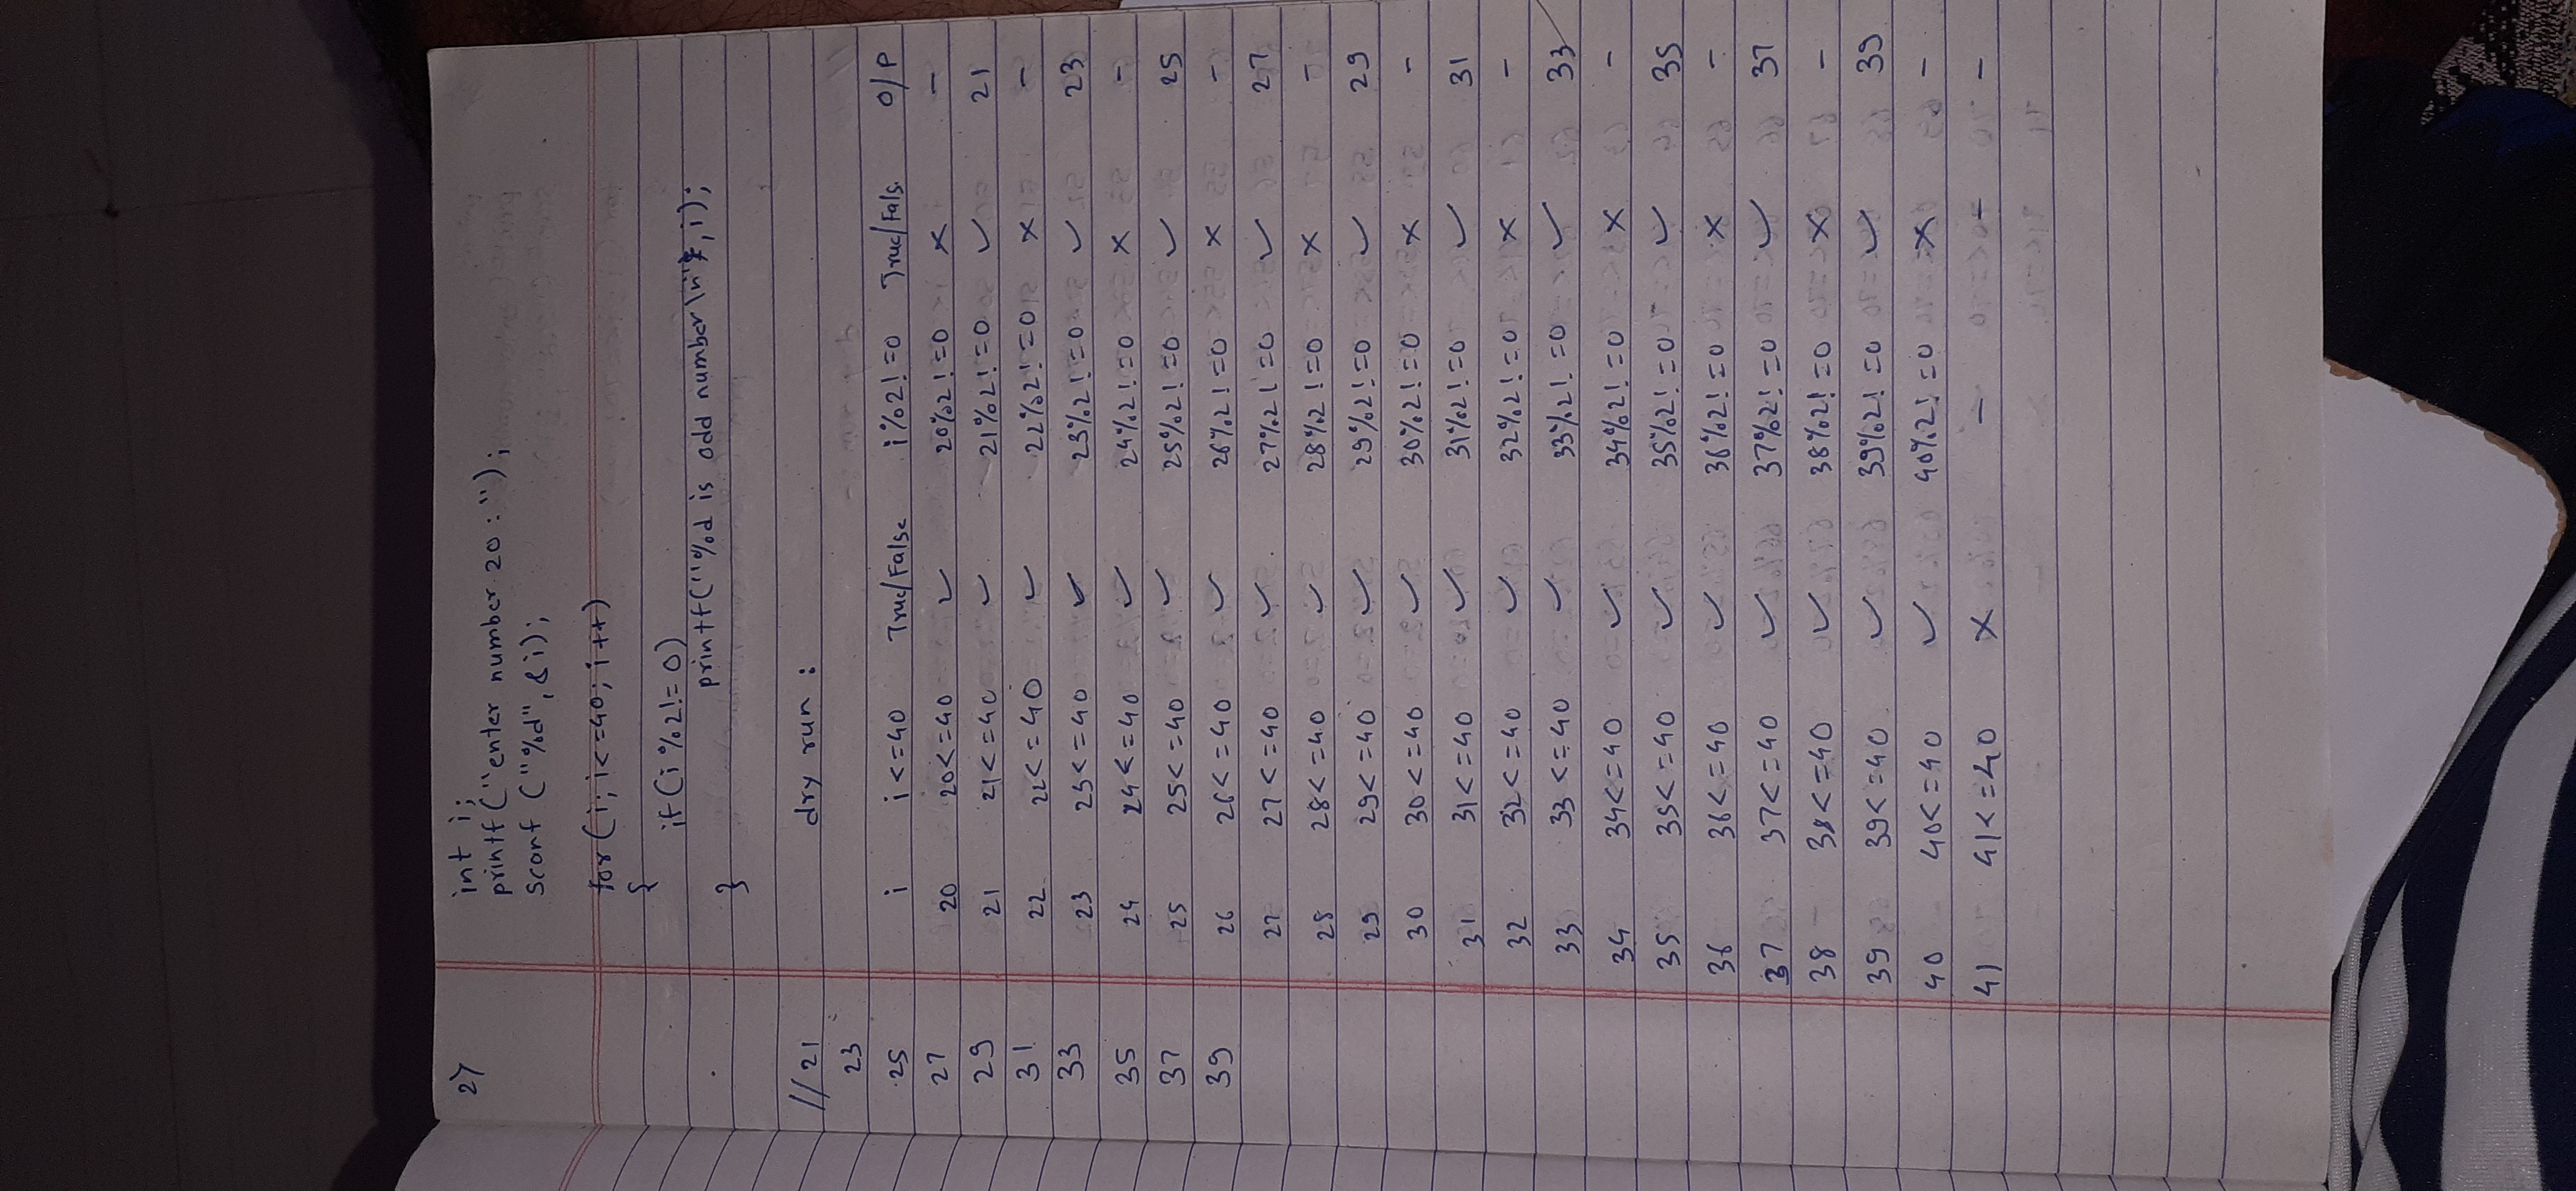 2) int i;
printf ("enter number 20 : ");
scanf ("%d", &i);
for (i; i<=40; i++)
{
if (i%2!=0)
printf("%d is odd number\n", i);
}
//21 dry run :
23
25 i i<=40 True/False i%2!=0 True/Fals. O/P
27 20 20<=40 ✓ 20%2!=0 × –
29 21 21<=40 ✓ 21%2!=0 ✓ 21
31 22 22<=40 ✓ 22%2!=0 × –
33 23 23<=40 ✓ 23%2!=0 ✓ 23
35 24 24<=40 ✓ 24%2!=0 × –
37 25 25<=40 ✓ 25%2!=0 ✓ 25
39 26 26<=40 ✓ 26%2!=0 × –
27 27<=40 ✓ 27%2!=0 ✓ 27
28 28<=40 ✓ 28%2!=0 × –
29 29<=40 ✓ 29%2!=0 ✓ 29
30 30<=40 ✓ 30%2!=0 × –
31 31<=40 ✓ 31%2!=0 ✓ 31
32 32<=40 ✓ 32%2!=0 × –
33 33<=40 ✓ 33%2!=0 ✓ 33
34 34<=40 ✓ 34%2!=0 × –
35 35<=40 ✓ 35%2!=0 ✓ 35
36 36<=40 ✓ 36%2!=0 × –
37 37<=40 ✓ 37%2!=0 ✓ 37
38 38<=40 ✓ 38%2!=0 × –
39 39<=40 ✓ 39%2!=0 ✓ 39
40 40<=40 ✓ 40%2!=0 × –
41 41<=40 × – – –